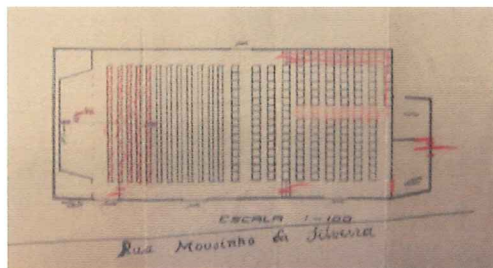 ESCALA 1-100
Rua Mousinho da Silveira